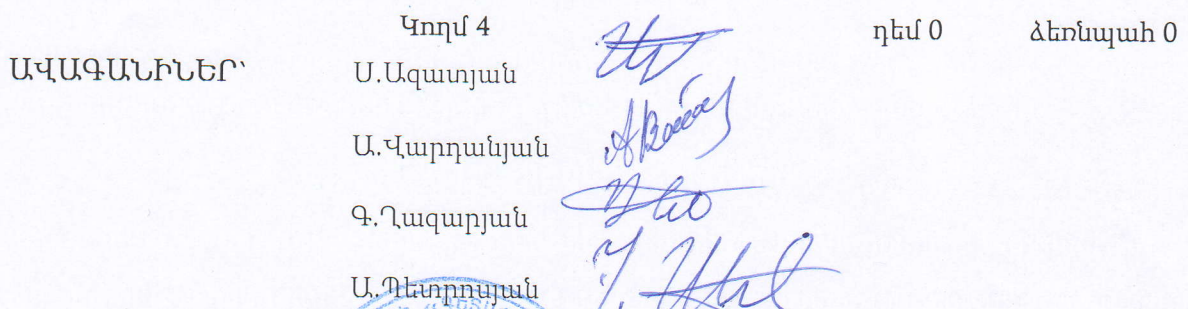 Կողմ 4 դեմ 0 ձեռնպահ 0
ԱՎԱԳԱՆԻՆԵՐ՝ Ս.Ազատյան
Ա.Վարդանյան
Գ.Ղազարյան
Ա.Պետրոսյան